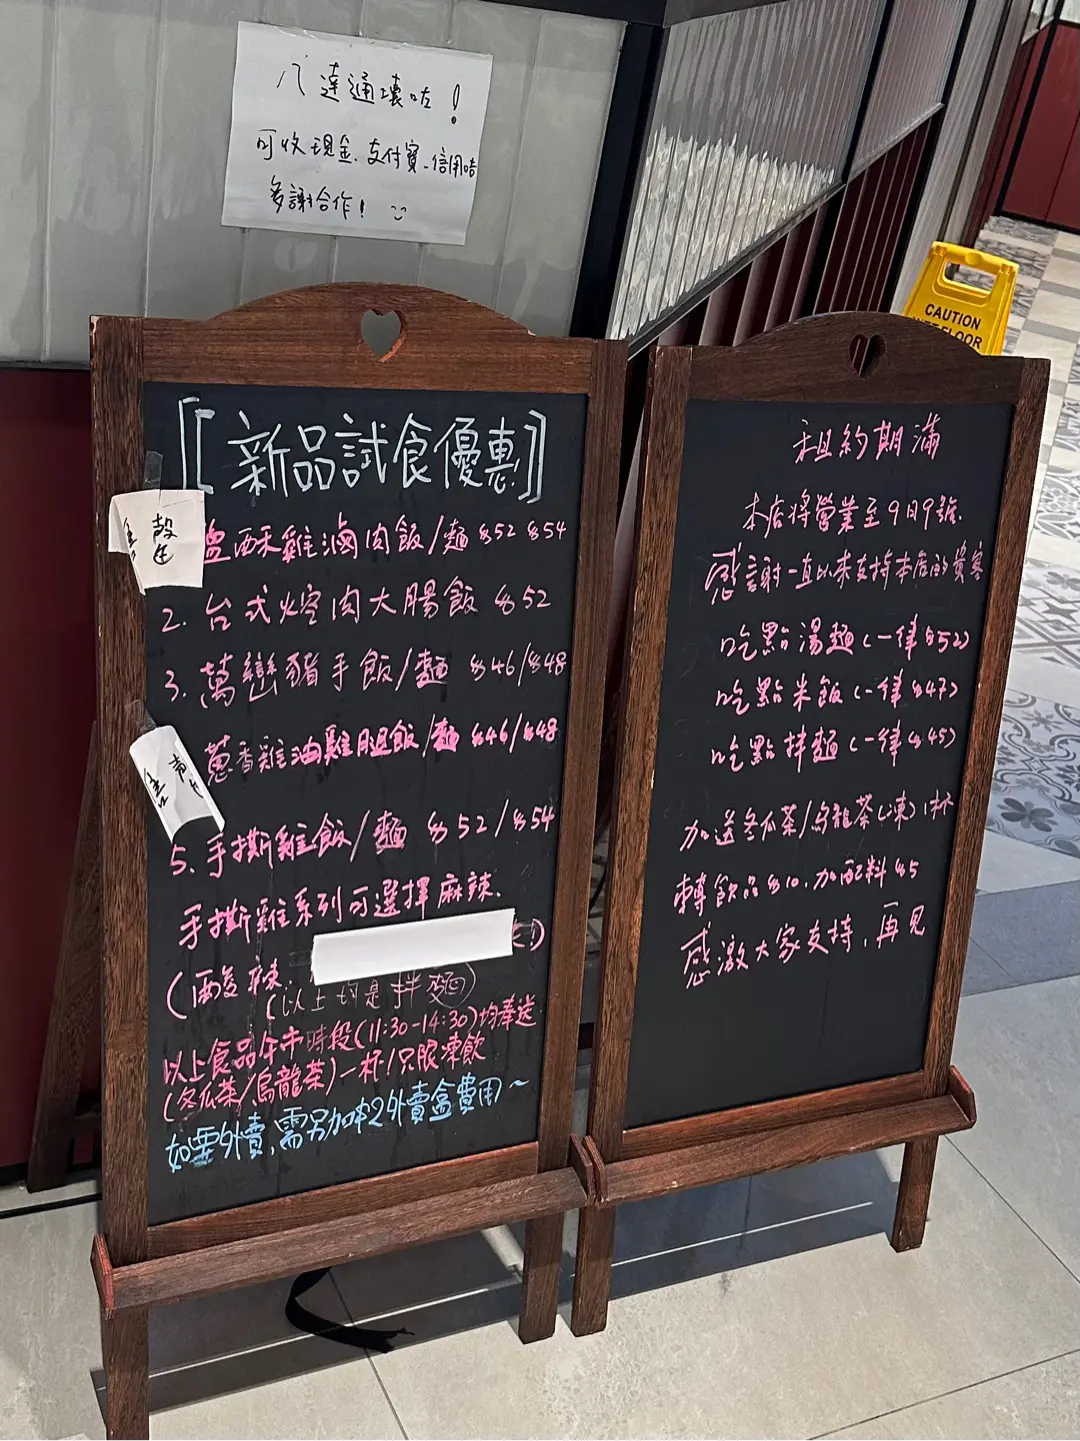 八達通壞咗!
可收現金、支付寶、信用咭
多謝合作!
CAUTION
FLOOR
[[新品試食優惠]]
售罄
鹽酥雞滷肉飯/麵 $52 $54
2. 台式焢肉大腸飯 $52
3. 萬巒豬手飯/麵 $46/$48
售
蔥香雞油雞腿飯/麵 $46/$48
5. 手撕雞飯/麵 $52/$54
手撕雞系列可選擇麻辣.
(酸辣
(以上均是拌麵)
以上食品午市時段(11:30-14:30)均奉送
(冬瓜茶/烏龍茶)一杯!只限凍飲
如要外賣,需另加$2外賣盒費用~
租約期滿
本店將營業至9月9號.
感謝一直以來支持本店的貴客
吃點湯麵(一律$52)
吃點米飯(一律$47)
吃點拌麵(一律$45)
加送冬瓜茶/烏龍茶(凍)1杯
轉飲品$10. 加配料$5
感激大家支持,再見